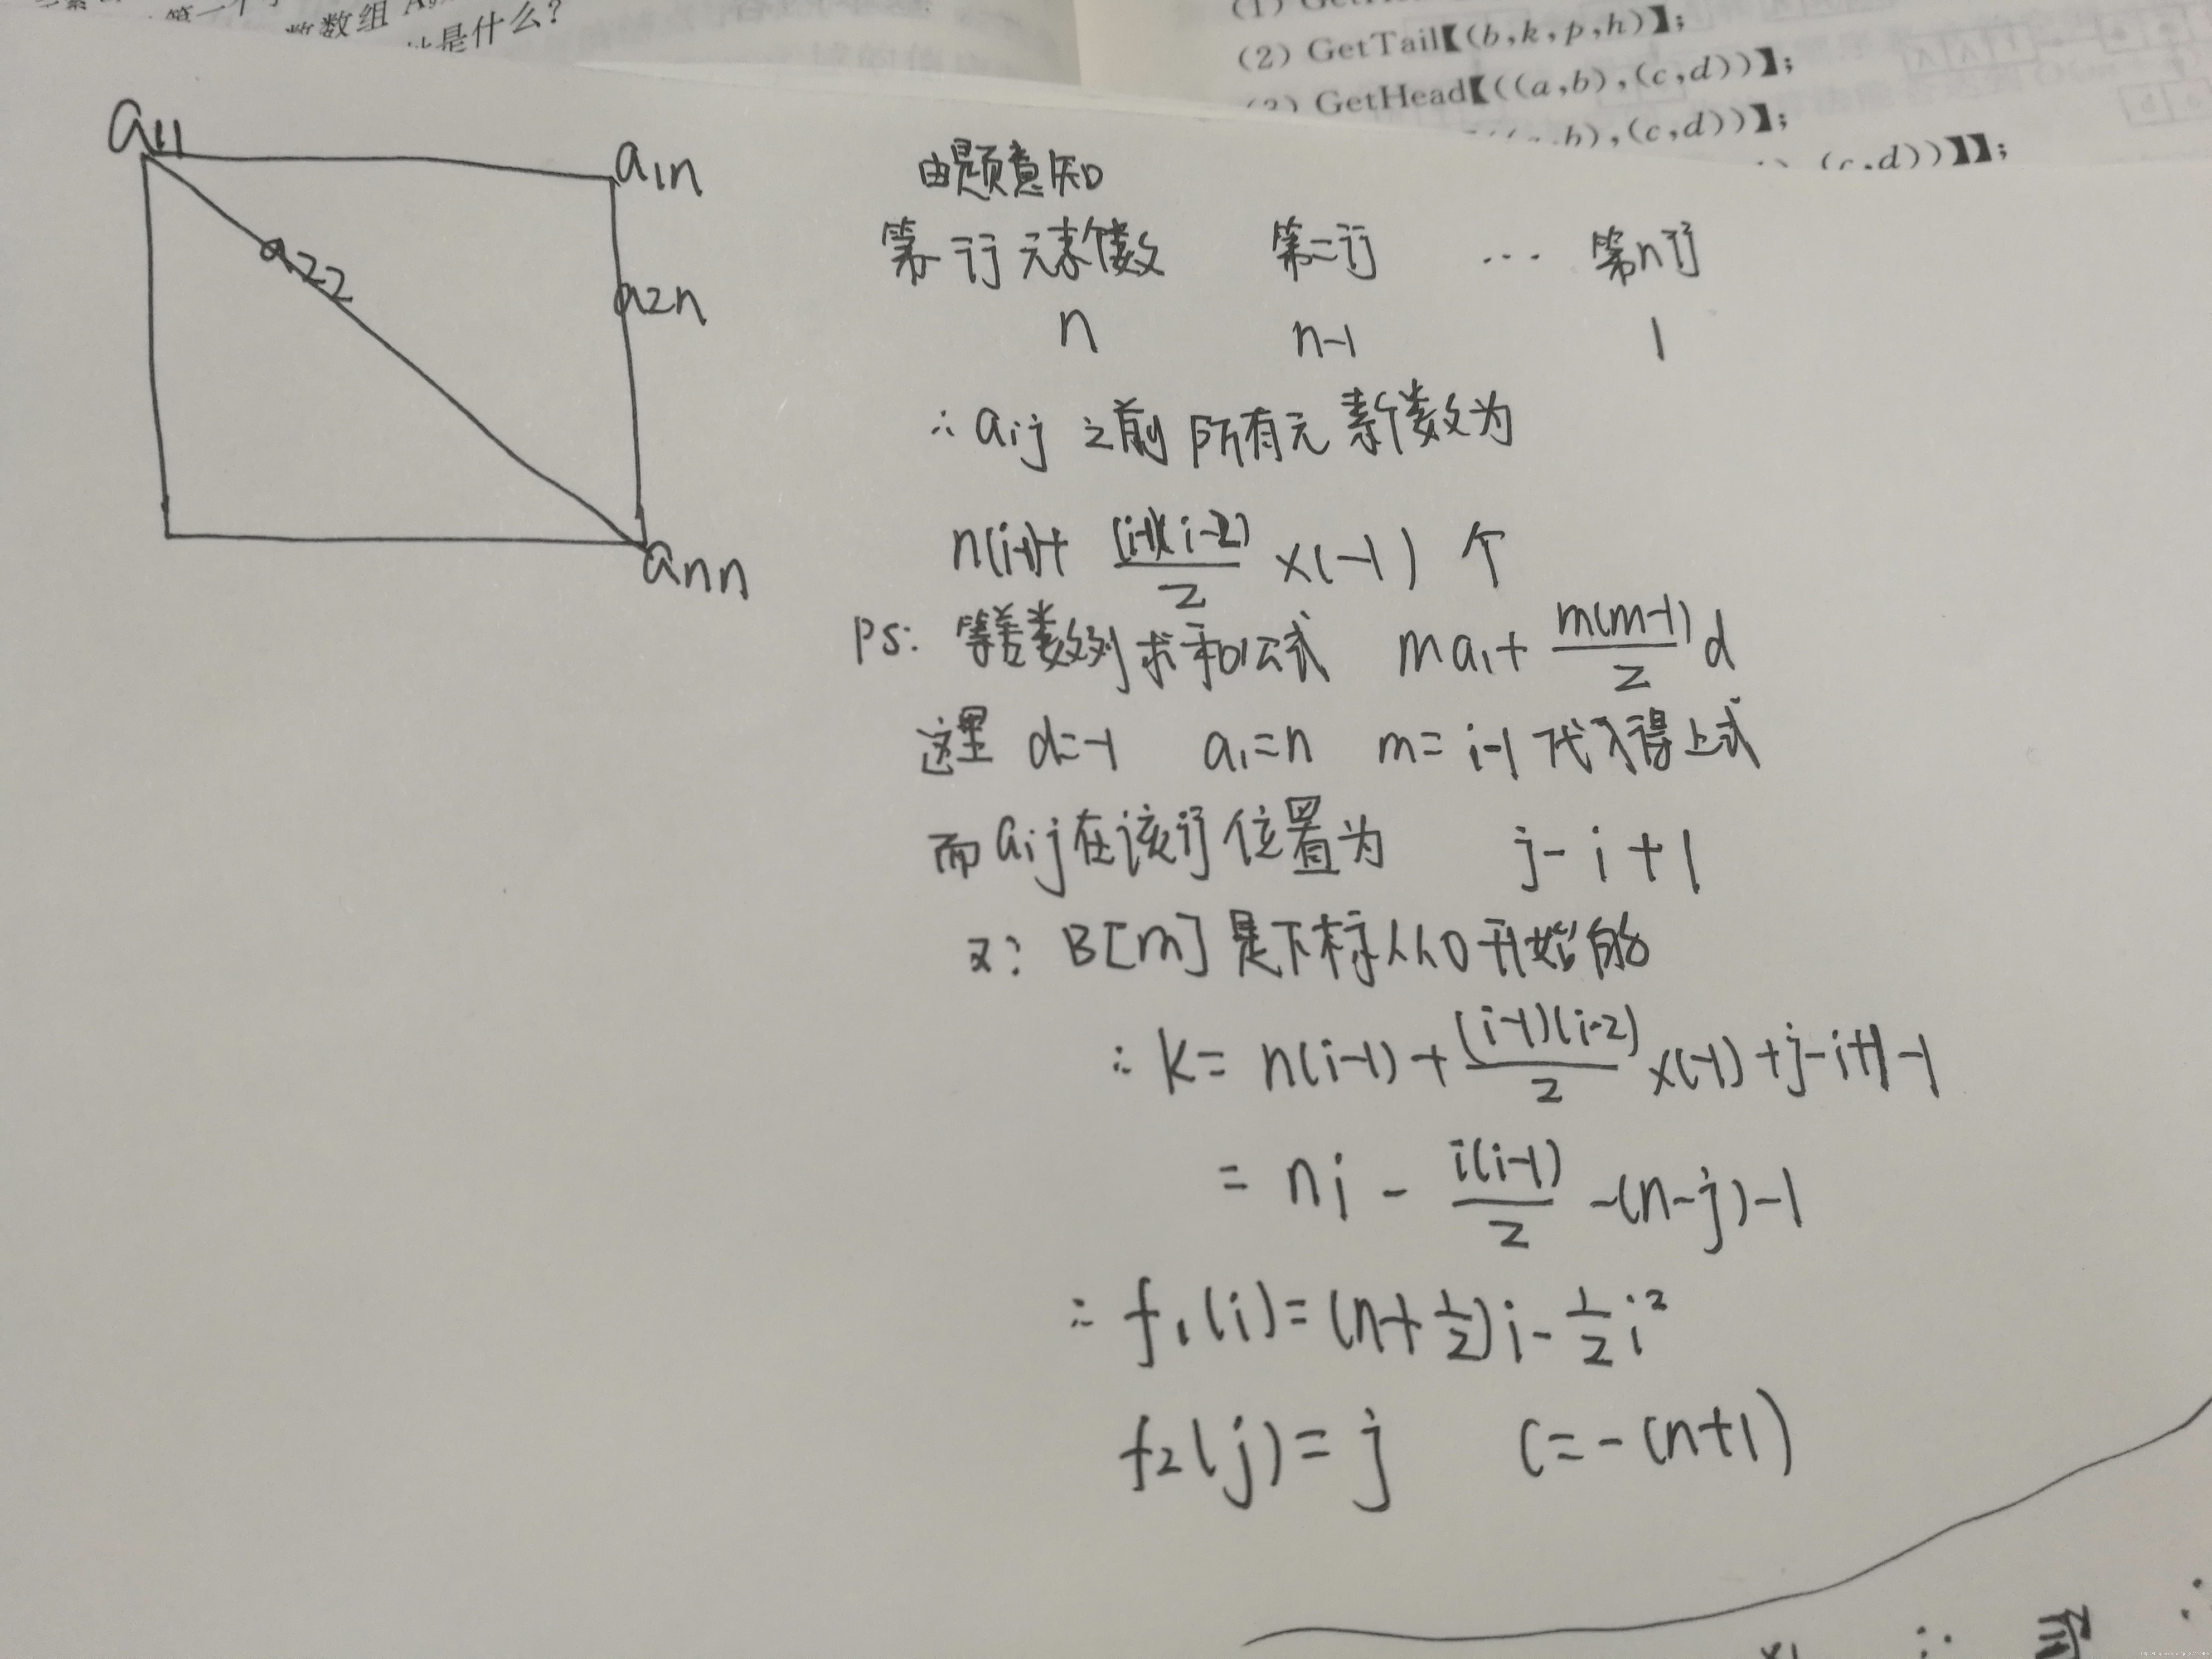 数组
是什么?
(2) GetTail【(b,k,p,h)】;
GetHead【((a,b),(c,d))】;
b),(c,d))】;
(c,d))】】;
a11
a1n
a22
a2n
ann
由题意知
第一行元素个数 第二行 … 第n行
n n-1 1
∴ aij 之前所有元素个数为
n(i-1)+ (i-1)(i-2)/2 ×(-1) 个
PS: 等差数列求和公式 ma₁+ m(m-1)/2 d
这里 d=-1 a₁=n m=i-1 代入得上式
而aij在该行位置为 j-i+1
又: B[m]是下标从0开始的
∴ k= n(i-1)+ (i-1)(i-2)/2 ×(-1)+j-i+1-1
= ni - i(i-1)/2 -(n-j)-1
∴ f₁(i)=(n+1/2)i-1/2 i²
f₂(j)=j C=-(n+1)